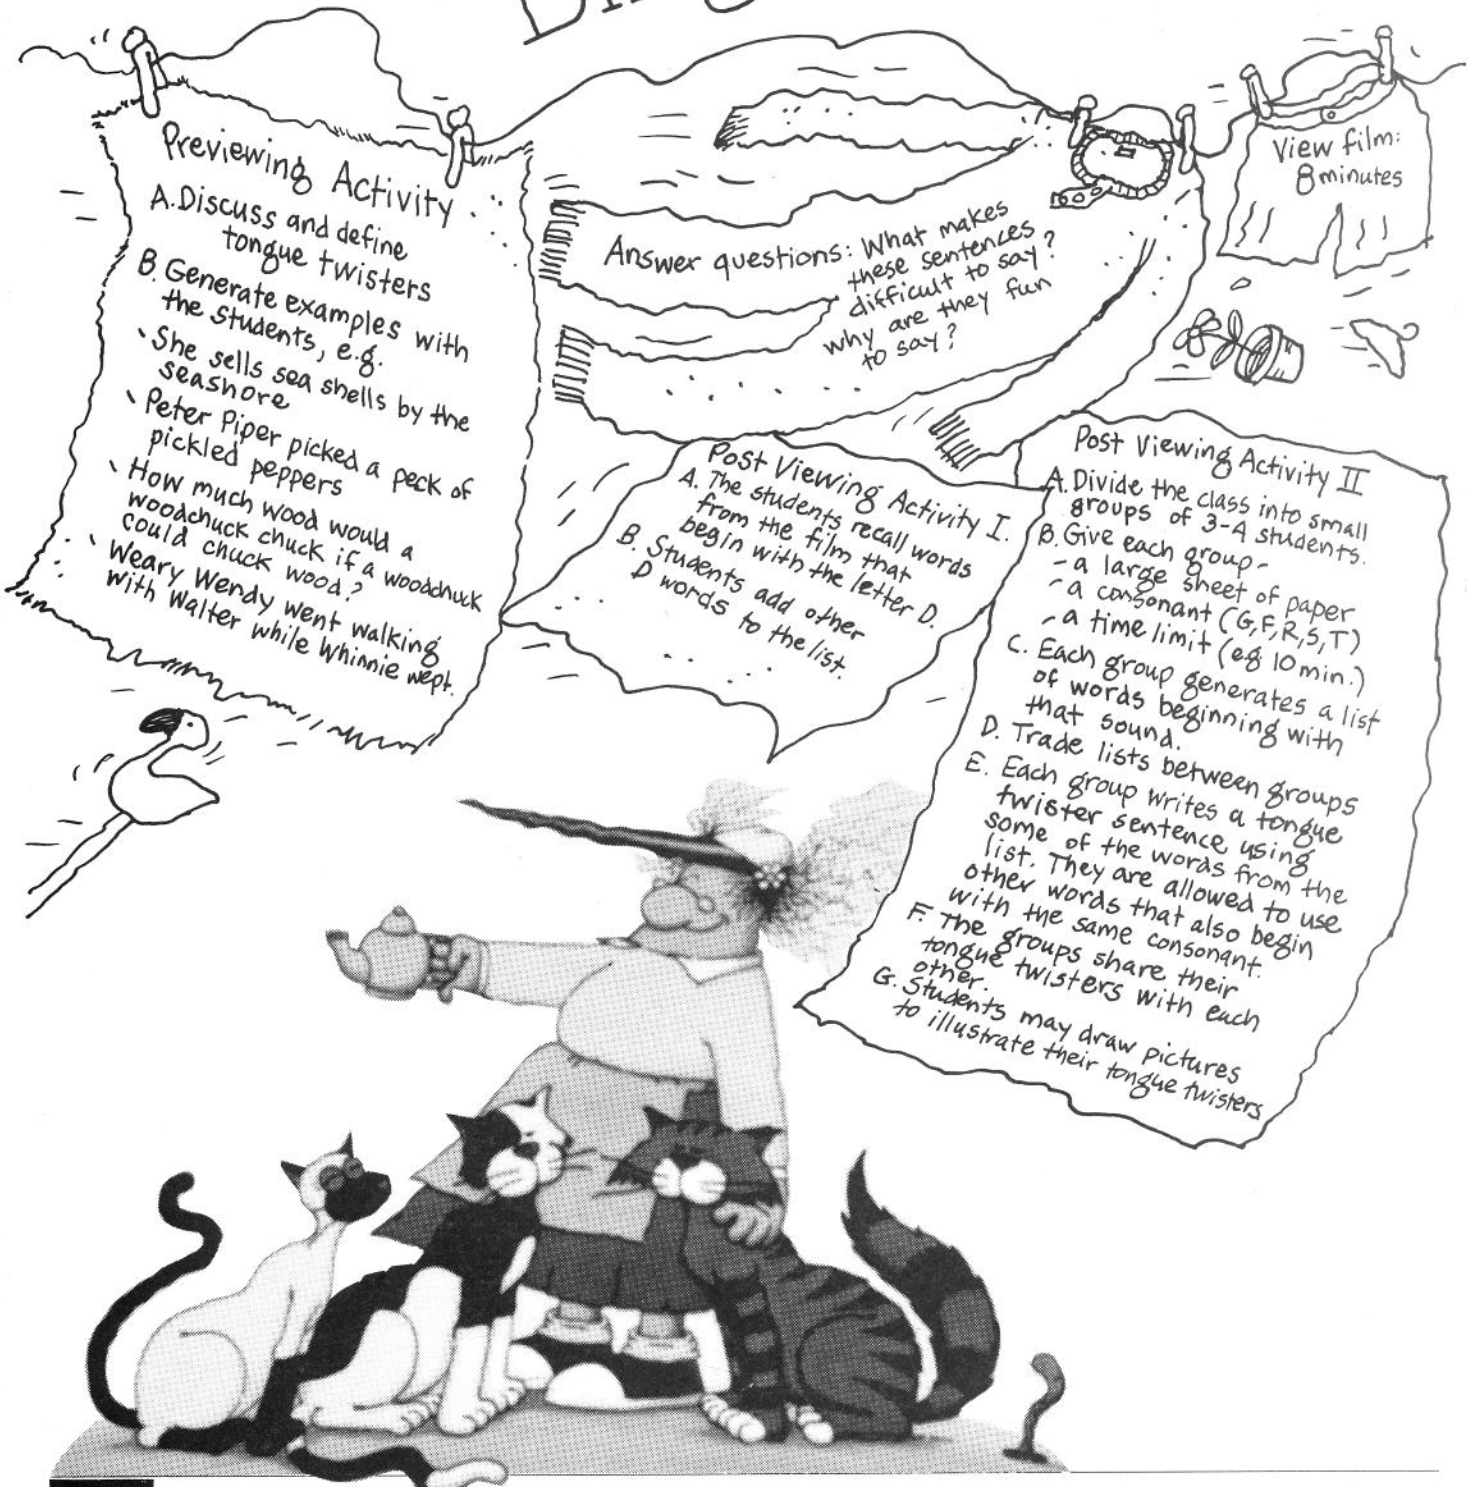 Previewing Activity
A. Discuss and define
tongue twisters
B. Generate examples with
the students, e.g.
She sells sea shells by the
seashore
Peter Piper picked a peck of
pickled peppers
How much wood would a
woodchuck chuck if a woodchuck
could chuck wood?
Weary Wendy went walking
with Walter while Whinnie wept.
Answer questions: What makes
these sentences
difficult to say?
why are they fun
to say?
View film:
8 minutes
Post Viewing Activity I.
A. The students recall words
from the film that
begin with the letter D.
B. Students add other
D words to the list.
Post Viewing Activity II
A. Divide the class into small
groups of 3-4 students.
B. Give each group-
- a large sheet of paper
- a consonant (G,F,R,S,T)
- a time limit (eg 10 min.)
C. Each group generates a list
of words beginning with
that sound.
D. Trade lists between groups
E. Each group writes a tongue
twister sentence using
some of the words from the
list. They are allowed to use
other words that also begin
with the same consonant.
F. The groups share their
tongue twisters with each
other.
G. Students may draw pictures
to illustrate their tongue twisters